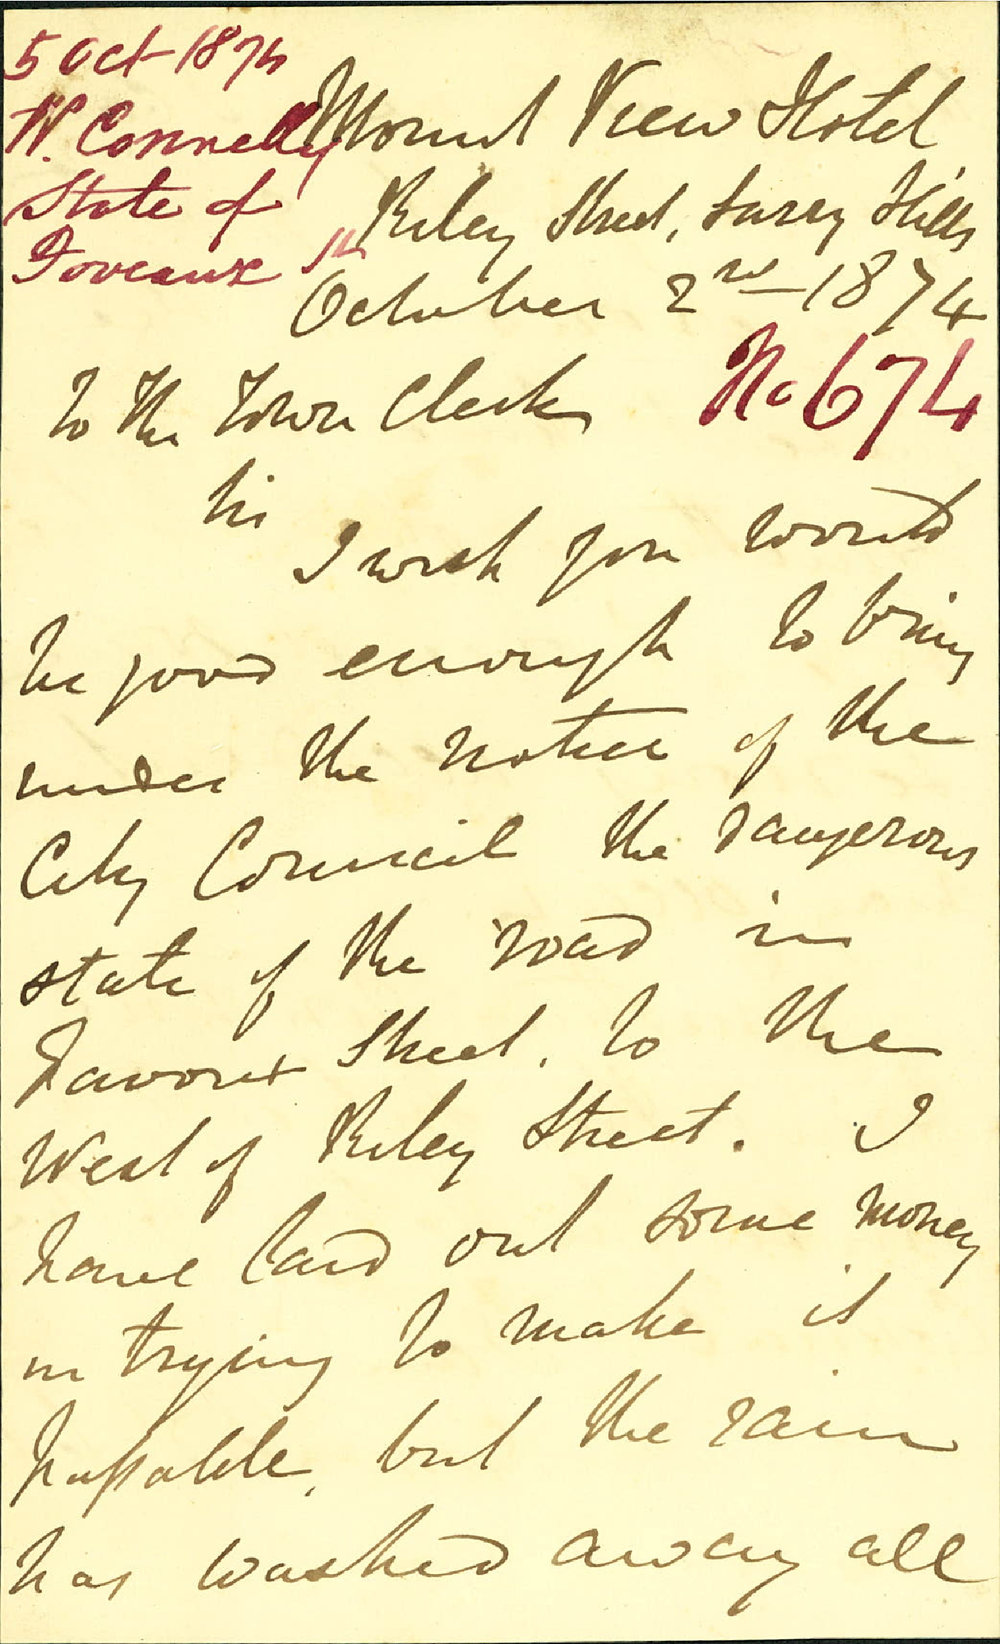 5 Oct 1874
W. Connelly
State of
Foveaux St
Mount View Hotel
Riley Street, Surry Hills
October 2nd 1874
No 674
To the Town Clerk
Sir
I wish you would
be good enough to bring
under the notice of the
City Council the dangerous
state of the road in
Favoux Street, to the
West of Riley Street. I
have laid out some money
in trying to make it
passable, but the rain
has washed away all